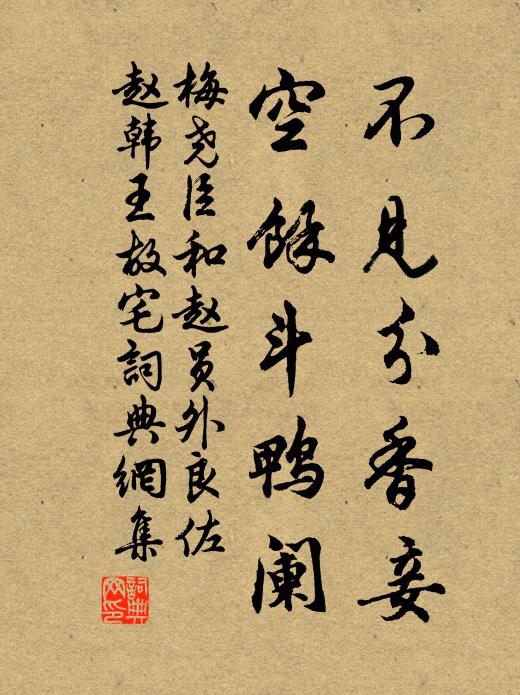 不见分香妾
空馀斗鸭阑
梅尧臣和赵员外良佐
赵韩王故宅詞典網集
詞典网印